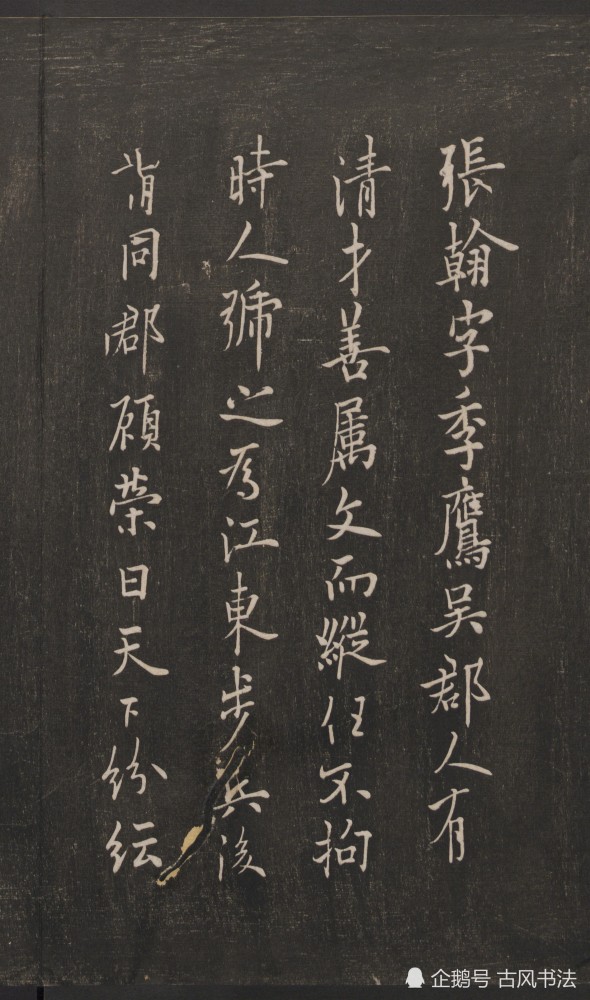 張翰字季鷹吴郡人有
清才善属文而縱任不拘
時人號之為江東步兵後
同郡顧榮曰天下紛紜
企鹅号 古风书法